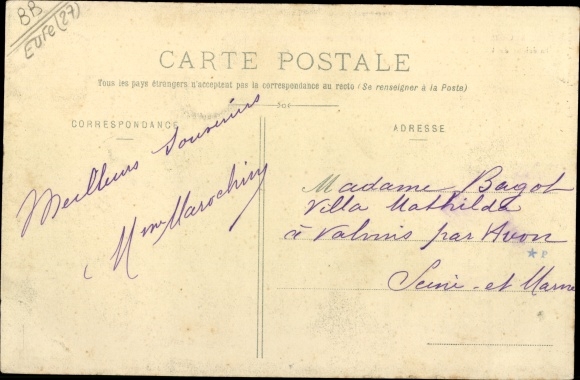 BB
Eure (27)
CARTE POSTALE
Tous les pays étrangers n'acceptent pas la correspondance au recto (Se renseigner à la Poste)
CORRESPONDANCE
Meilleurs souvenirs
Mme
ADRESSE
Madame Bagot
Villa Mathilde
à Valvins par Avon
Seine-et-Marne